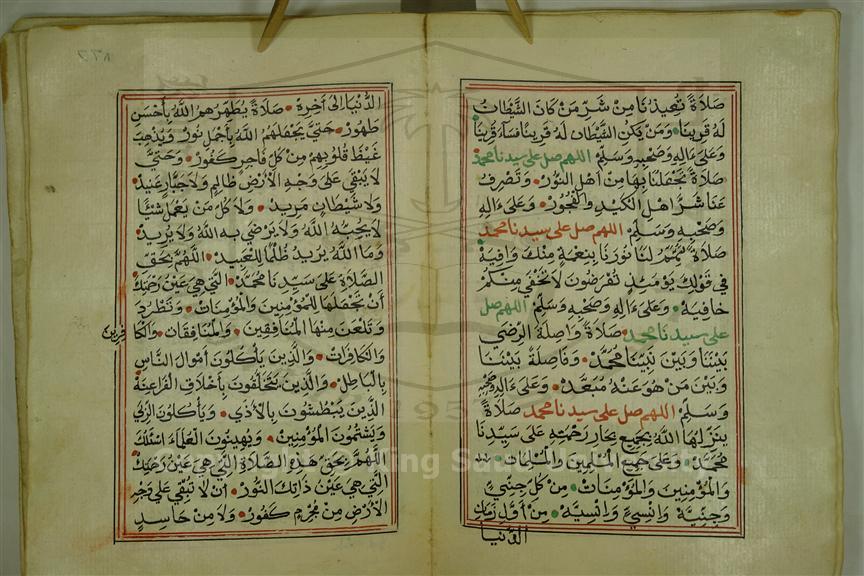 صَلَاةً تُعِيذُنَا مِنْ شَرِّ مَنْ كَانَ الشَّيْطَانُ
لَهُ قَرِينًا وَمَنْ يَكُنِ الشَّيْطَانُ لَهُ قَرِينًا فَسَاءَ قَرِينًا
وَعَلَى آلِهِ وَصَحْبِهِ وَسَلِّمْ اللهم صل على سيدنا محمد
صَلَاةً تَجْعَلُنَا بِهَا مِنْ أَهْلِ النُّورِ وَتَصْرِفُ
عَنَّا شَرَّ أَهْلِ الْكَيْدِ وَالْفُجُورِ وَعَلَى آلِهِ
وَصَحْبِهِ وَسَلِّمْ اللهم صل على سيدنا محمد
صَلَاةً تُتَمِّمُ لَنَا نُورَنَا بِنِعْمَةٍ مِنْكَ وَافِيَةٍ
فِي قَوْلِكَ يَوْمَئِذٍ تُعْرَضُونَ لَا تَخْفَى مِنْكُمْ
خَافِيَةٌ وَعَلَى آلِهِ وَصَحْبِهِ وَسَلِّمْ اللهم صل
على سيدنا محمد صَلَاةً وَاصِلَةً الرِّضَى
بَيْنَنَا وَبَيْنَ نَبِيِّنَا مُحَمَّدٍ وَفَاصِلَةً بَيْنَنَا
وَبَيْنَ مَنْ هُوَ عَنْهُ مُبَعَّدٌ وَعَلَى آلِهِ وَصَحْبِهِ
وَسَلِّمْ اللهم صل على سيدنا محمد صَلَاةً
يُنْزِلُهَا اللهُ بِجَمِيعِ بِحَارِ رَحْمَتِهِ عَلَى سَيِّدِنَا
مُحَمَّدٍ وَعَلَى جَمِيعِ الْمُسْلِمِينَ وَالْمُسْلِمَاتِ
وَالْمُؤْمِنِينَ وَالْمُؤْمِنَاتِ مِنْ كُلِّ جِنِّيٍّ
وَجِنِّيَّةٍ وَإِنْسِيٍّ وَإِنْسِيَّةٍ مِنْ أَوَّلِ
الدنيا
الدُّنْيَا إِلَى آخِرِهِ صَلَاةً يُطَهِّرُهُمُ اللهُ بِأَحْسَنِ
طَهُورٍ حَتَّى يَجْعَلَهُمُ اللهُ بِأَجْمَلِ نُورٍ وَيُذْهِبَ
غَيْظَ قُلُوبِهِمْ مِنْ كُلِّ فَاجِرٍ كَفُورٍ وَحَتَّى
لَا يَبْقَى عَلَى وَجْهِ الْأَرْضِ ظَالِمٌ وَلَا جَبَّارٌ عَنِيدٌ
وَلَا شَيْطَانٌ مَرِيدٌ وَلَا كُلُّ مَنْ يَعْمَلُ شَيْئًا
لَا يُحِبُّهُ اللهُ وَلَا يَرْضَى بِهِ اللهُ وَلَا يُرِيدُ
وَمَا اللهُ يُرِيدُ ظُلْمًا لِلْعَبِيدِ اللَّهُمَّ بِحَقِّ
الصَّلَاةِ عَلَى سَيِّدِنَا مُحَمَّدٍ الَّتِي هِيَ عَيْنُ رَحْمَتِكَ
أَنْ تَجْعَلَهَا لِلْمُؤْمِنِينَ وَالْمُؤْمِنَاتِ وَتَطْرُدَ
وَتَلْعَنَ مِنْهَا الْمُنَافِقِينَ وَالْمُنَافِقَاتِ وَالْكَافِرِينَ
وَالْكَافِرَاتِ وَالَّذِينَ يَأْكُلُونَ أَمْوَالَ النَّاسِ
بِالْبَاطِلِ وَالَّذِينَ يَتَخَلَّقُونَ بِأَخْلَاقِ الْفَرَاعِنَةِ
الَّذِينَ يَبْطِشُونَ بِالْأَذَى وَيَأْكُلُونَ
وَيَشْتِمُونَ الْمُؤْمِنِينَ وَيُهِينُونَ الْعُلَمَاءَ أَسْئَلُكَ
اللَّهُمَّ بِحَقِّ هَذِهِ الصَّلَاةِ الَّتِي هِيَ عَيْنُ رَحْمَتِكَ
الَّتِي هِيَ عَيْنُ ذَاتِكَ النُّورِ أَنْ لَا تُبْقِيَ عَلَى وَجْهِ
الْأَرْضِ مِنْ مُجْرِمٍ كَفُورٍ وَلَا مِنْ حَاسِدٍ